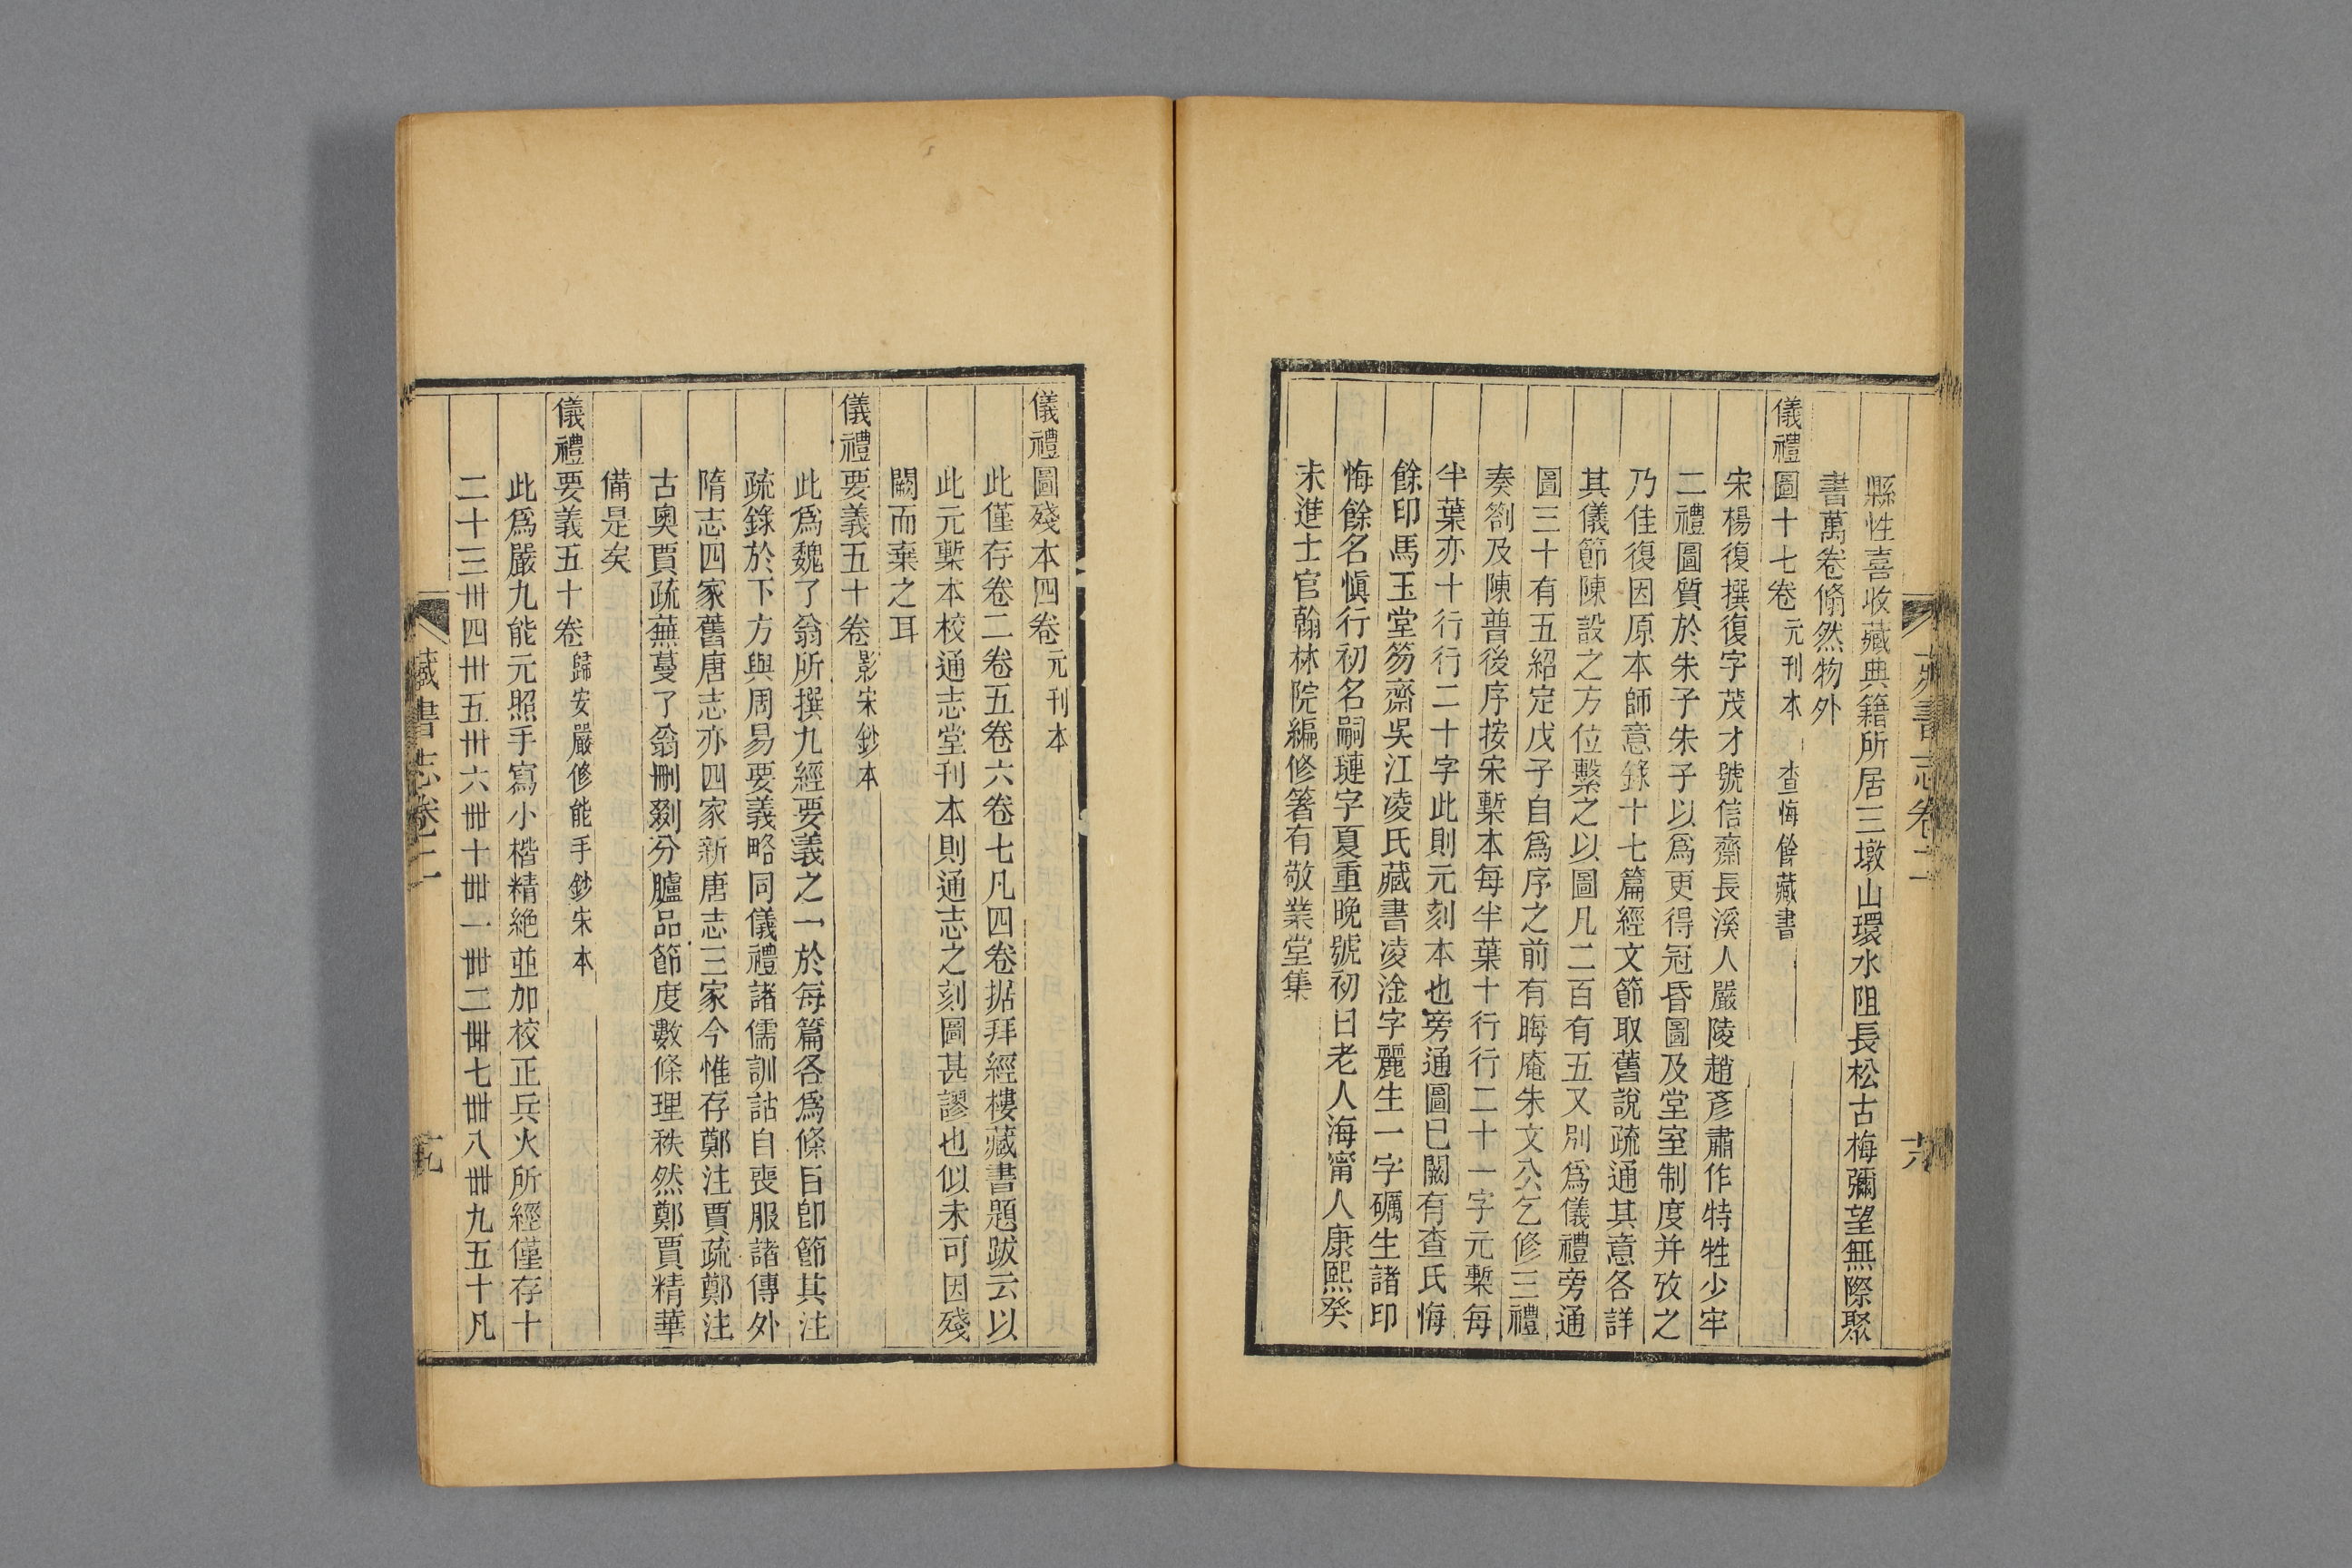 縣性喜收藏典籍所居三墩山環水阻長松古梅彌望無際聚
書萬卷翛然物外
儀禮圖十七卷 元刊本 查悔餘藏書
宋楊復撰復字茂才號信齋長溪人嚴陵趙彥肅作特牲少牢
二禮圖質於朱子朱子以爲更得冠昏圖及堂室制度并攷之
乃佳復因原本師意錄十七篇經文節取舊說疏通其意各詳
其儀節陳設之方位繫之以圖凡二百有五又別爲儀禮旁通
圖三十有五紹定戊子自爲序之前有晦庵朱文公乞修三禮
奏劄及陳普後序按宋槧本每半葉十行行二十一字元槧每
半葉亦十行行二十字此則元刻本也旁通圖已闕有查氏悔
餘印馬玉堂笏齋吳江凌氏藏書凌淦字麗生一字礪生諸印
悔餘名愼行初名嗣璉字夏重晚號初白老人海甯人康熙癸
未進士官翰林院編修箸有敬業堂集
藏書志卷二
儀禮圖殘本四卷 元刊本
此僅存卷二卷五卷六卷七凡四卷据拜經樓藏書題跋云以
此元槧本校通志堂刊本則通志之刻圖甚謬也似未可因殘
闕而棄之耳
儀禮要義五十卷 影宋鈔本
此爲魏了翁所撰九經要義之一於每篇各爲條目卽節其注
疏錄於下方與周易要義略同儀禮諸儒訓詁自喪服諸傳外
隋志四家舊唐志亦四家新唐志三家今惟存鄭注賈疏鄭注
古奧賈疏蕪蔓了翁刪剟分臚品節度數條理秩然鄭賈精華
備是矣
儀禮要義五十卷 歸安嚴修能手鈔宋本
此爲嚴九能元照手寫小楷精絶並加校正兵火所經僅存十
二十三卅四卅五卅六卌十卌一卌二卌七卌八卌九五十凡
藏書志卷二